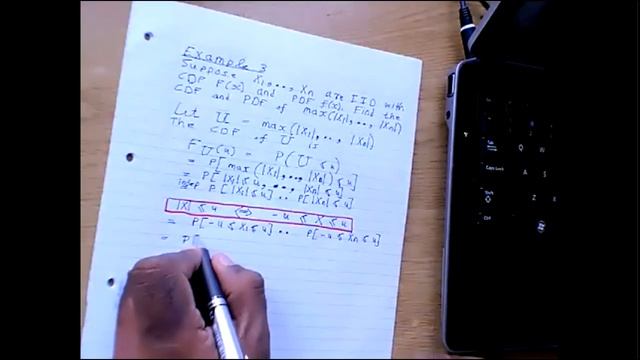 Example 3
Suppose X1,..,Xn are IID with
CDF F(x) and PDF f(x). Find the
CDF and PDF of max(|X1|,..,|Xn|)
Let U = max(|X1|,..,|Xn|)
The CDF of U is
FU(u) = P(U ≤ u)
= P[max(|X1|,..,|Xn|) ≤ u]
= P[|X1| ≤ u,..,|Xn| ≤ u]
indep P[|X1| ≤ u]..P[|Xn| ≤ u]
|X| ≤ u ⟺ -u ≤ X ≤ u
= P[-u ≤ X1 ≤ u].. P[-u ≤ Xn ≤ u]
= P[